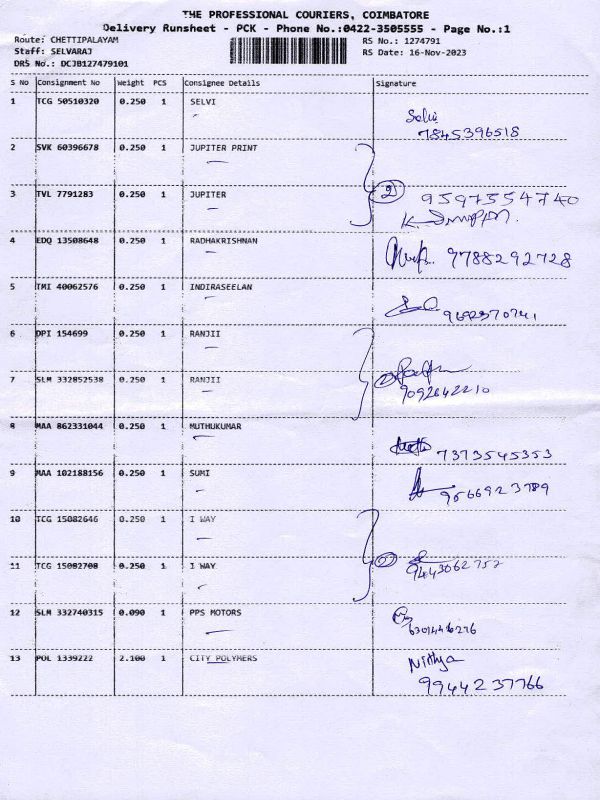 THE PROFESSIONAL COURIERS, COIMBATORE
Delivery Runsheet - PCK - Phone No.:0422-3505555 - Page No.:1
Route: CHETTIPALAYAM RS No.: 1274791
Staff: SELVARAJ RS Date: 16-Nov-2023
DRS No.: DCJB127479101
S No Consignment No Weight PCS Consignee Details Signature
1 TCG 50510320 0.250 1 SELVI Selvi
7845396518
2 SVK 60396678 0.250 1 JUPITER PRINT
3 TVL 7791283 0.250 1 JUPITER 2 9597554740
4 EDQ 13508648 0.250 1 RADHAKRISHNAN 9788292728
5 TMI 40062576 0.250 1 INDIRASEELAN
6 DPI 154699 0.250 1 RANJII
7 SLM 332852538 0.250 1 RANJII 2
9092642210
8 MAA 862331044 0.250 1 MUTHUKUMAR 7373545353
9 MAA 102188156 0.250 1 SUMI
10 TCG 15082646 0.250 1 I WAY
11 TCG 15082708 0.250 1 I WAY 2
9443062752
12 SLM 332740315 0.090 1 PPS MOTORS
13 POL 1339222 2.100 1 CITY POLYMERS Nithya
9944237766